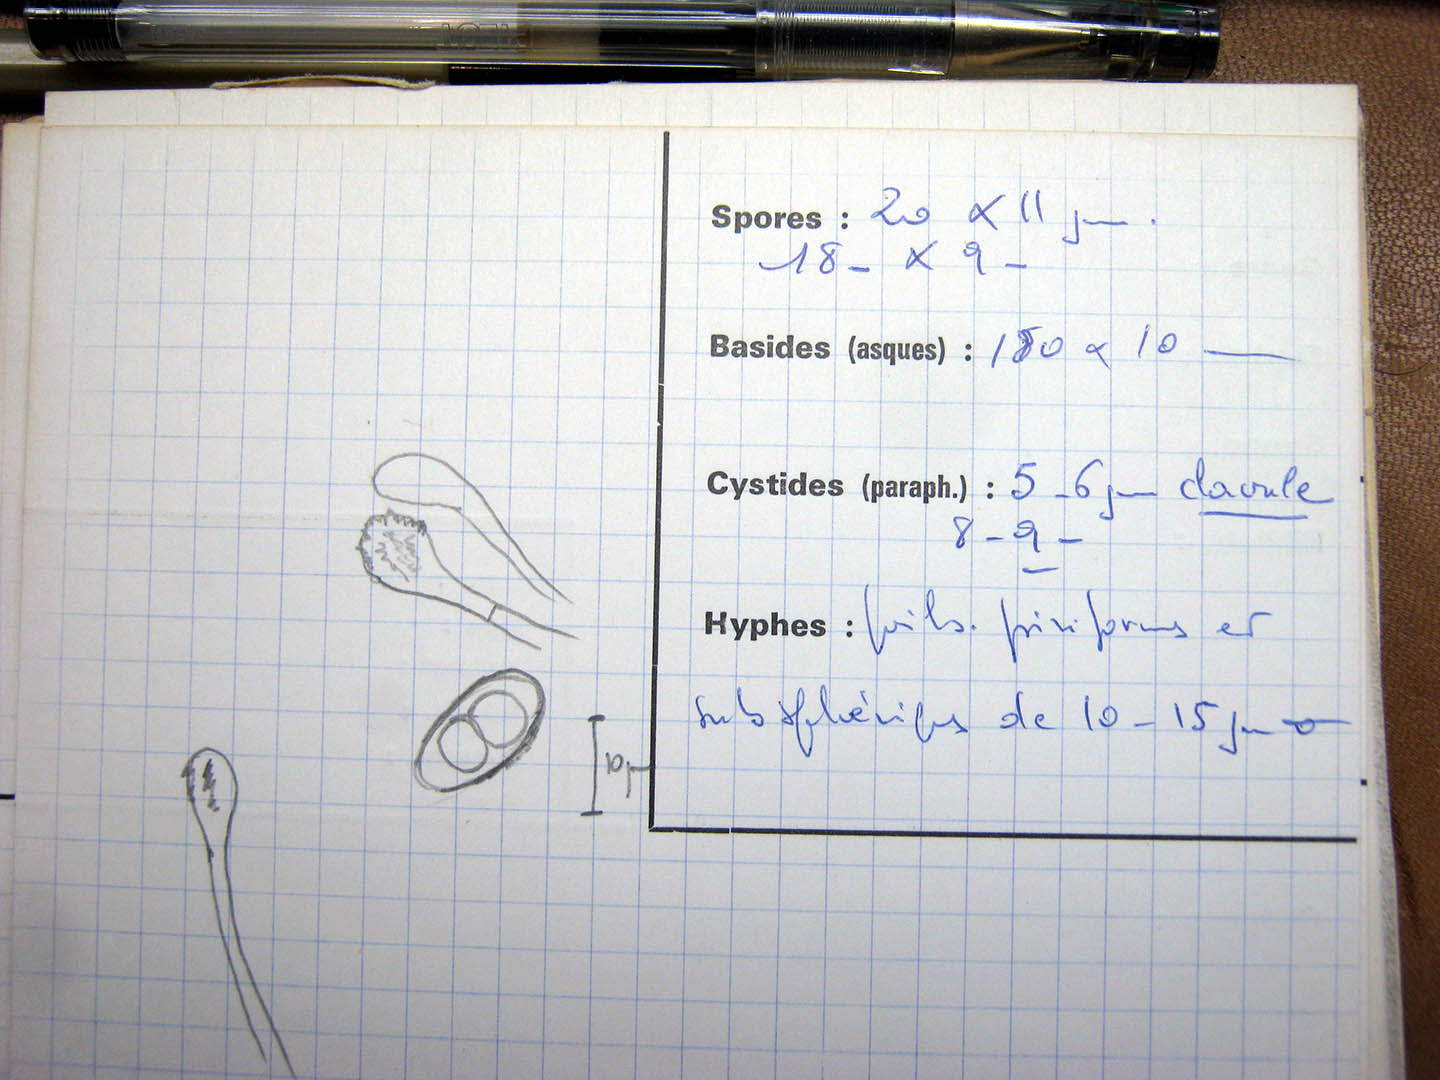 Spores : 20 x 11 µm.
18 - x 9 -
Basides (asques) : 180 x 10
Cystides (paraph.) : 5-6 µm
8 - 9 -
Hyphes : poils. piriformes et
subsphériques de 10-15 µm
10 µ